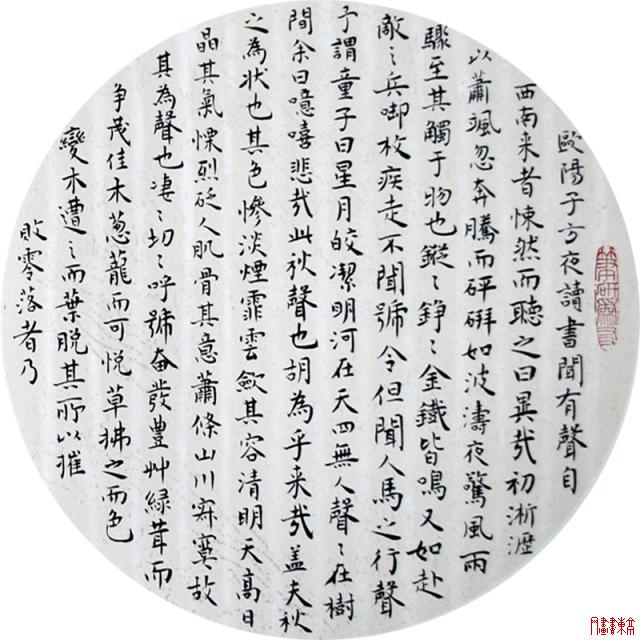 歐陽子方夜讀書聞有聲自
西南来者悚然而聽之曰異哉初淅瀝
以蕭颯忽奔騰而砰湃如波濤夜驚風雨
驟至其觸于物也鏦〻錚〻金鐵皆鳴又如赴
敵之兵啣枚疾走不聞號令但聞人馬之行聲
予謂童子曰星月皎潔明河在天四無人聲〻在樹
間余曰噫嘻悲哉此秋聲也胡為乎来哉盖夫秋
之為状也其色慘淡煙霏雲歛其容清明天高日
晶其氣慄烈砭人肌骨其意蕭條山川寂寞故
其為聲也凄〻切〻呼號奮發豊艸緑茸而
争茂佳木葱蘢而可悦草拂之而色
變木遭之而葉脱其所以摧
敗零落者乃